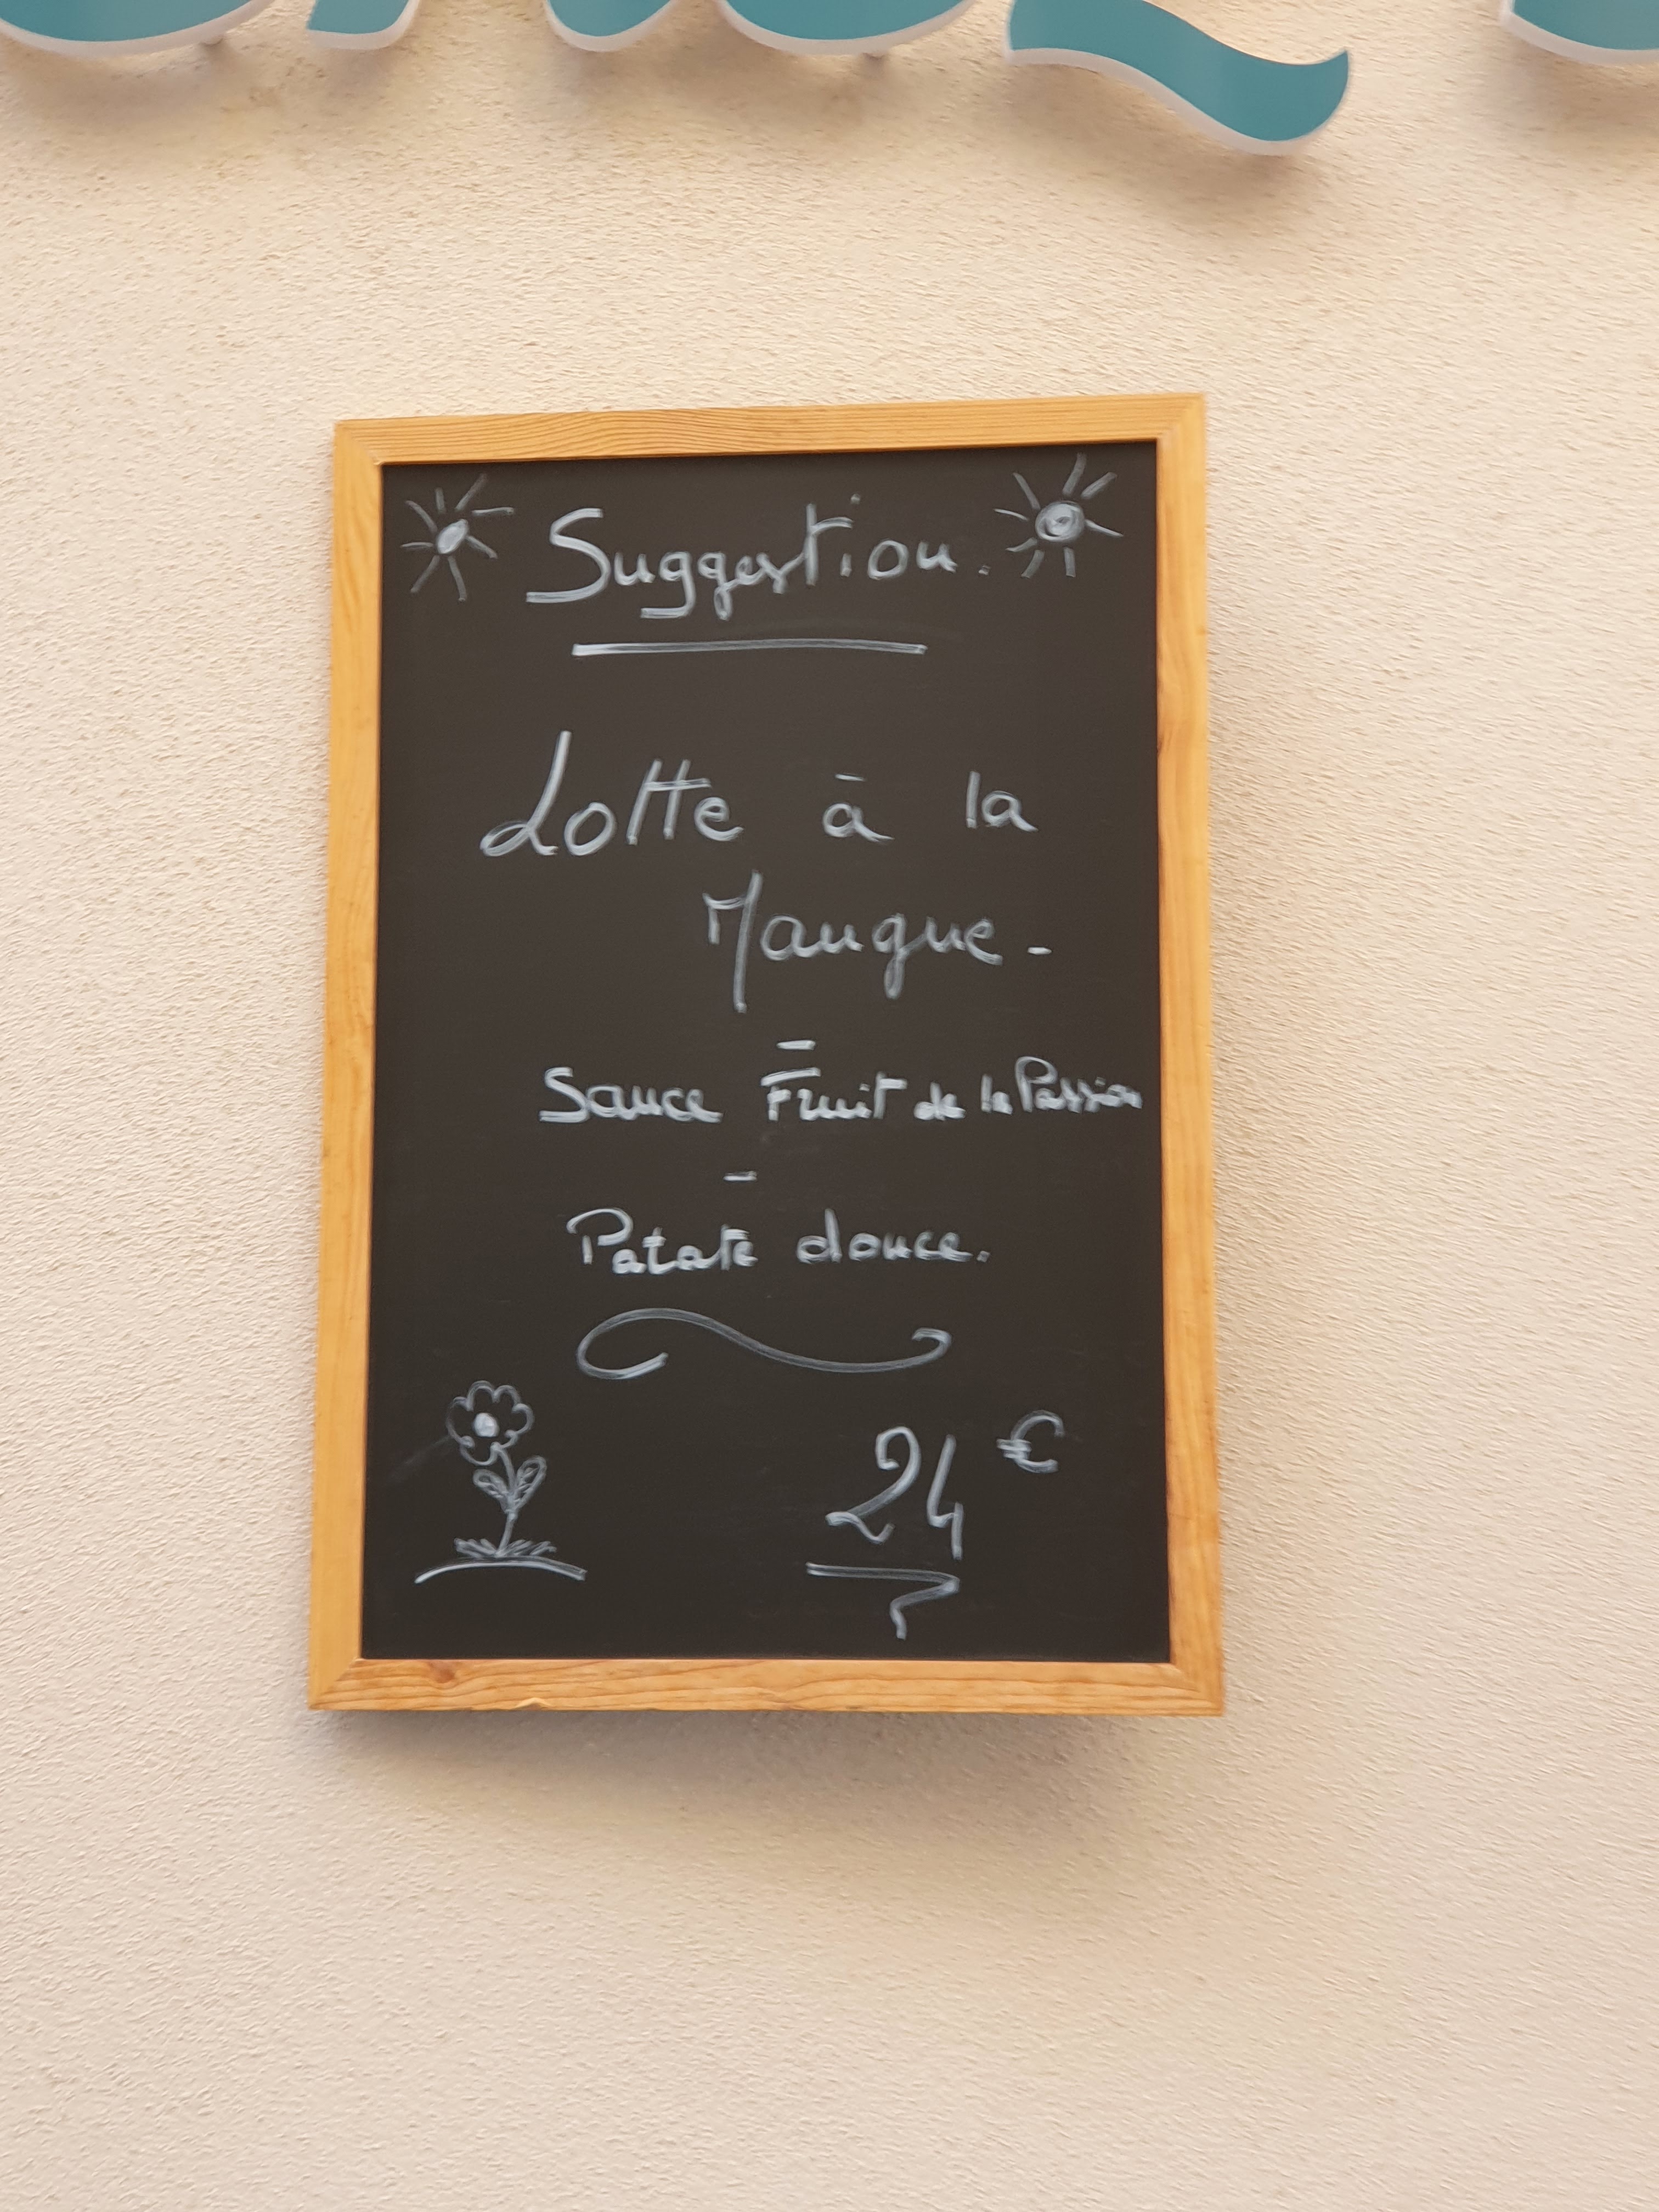 Suggestion.
Lotte à la
Mangue -
-
Sauce Fruit de la Passion
-
Patate douce.
24 €